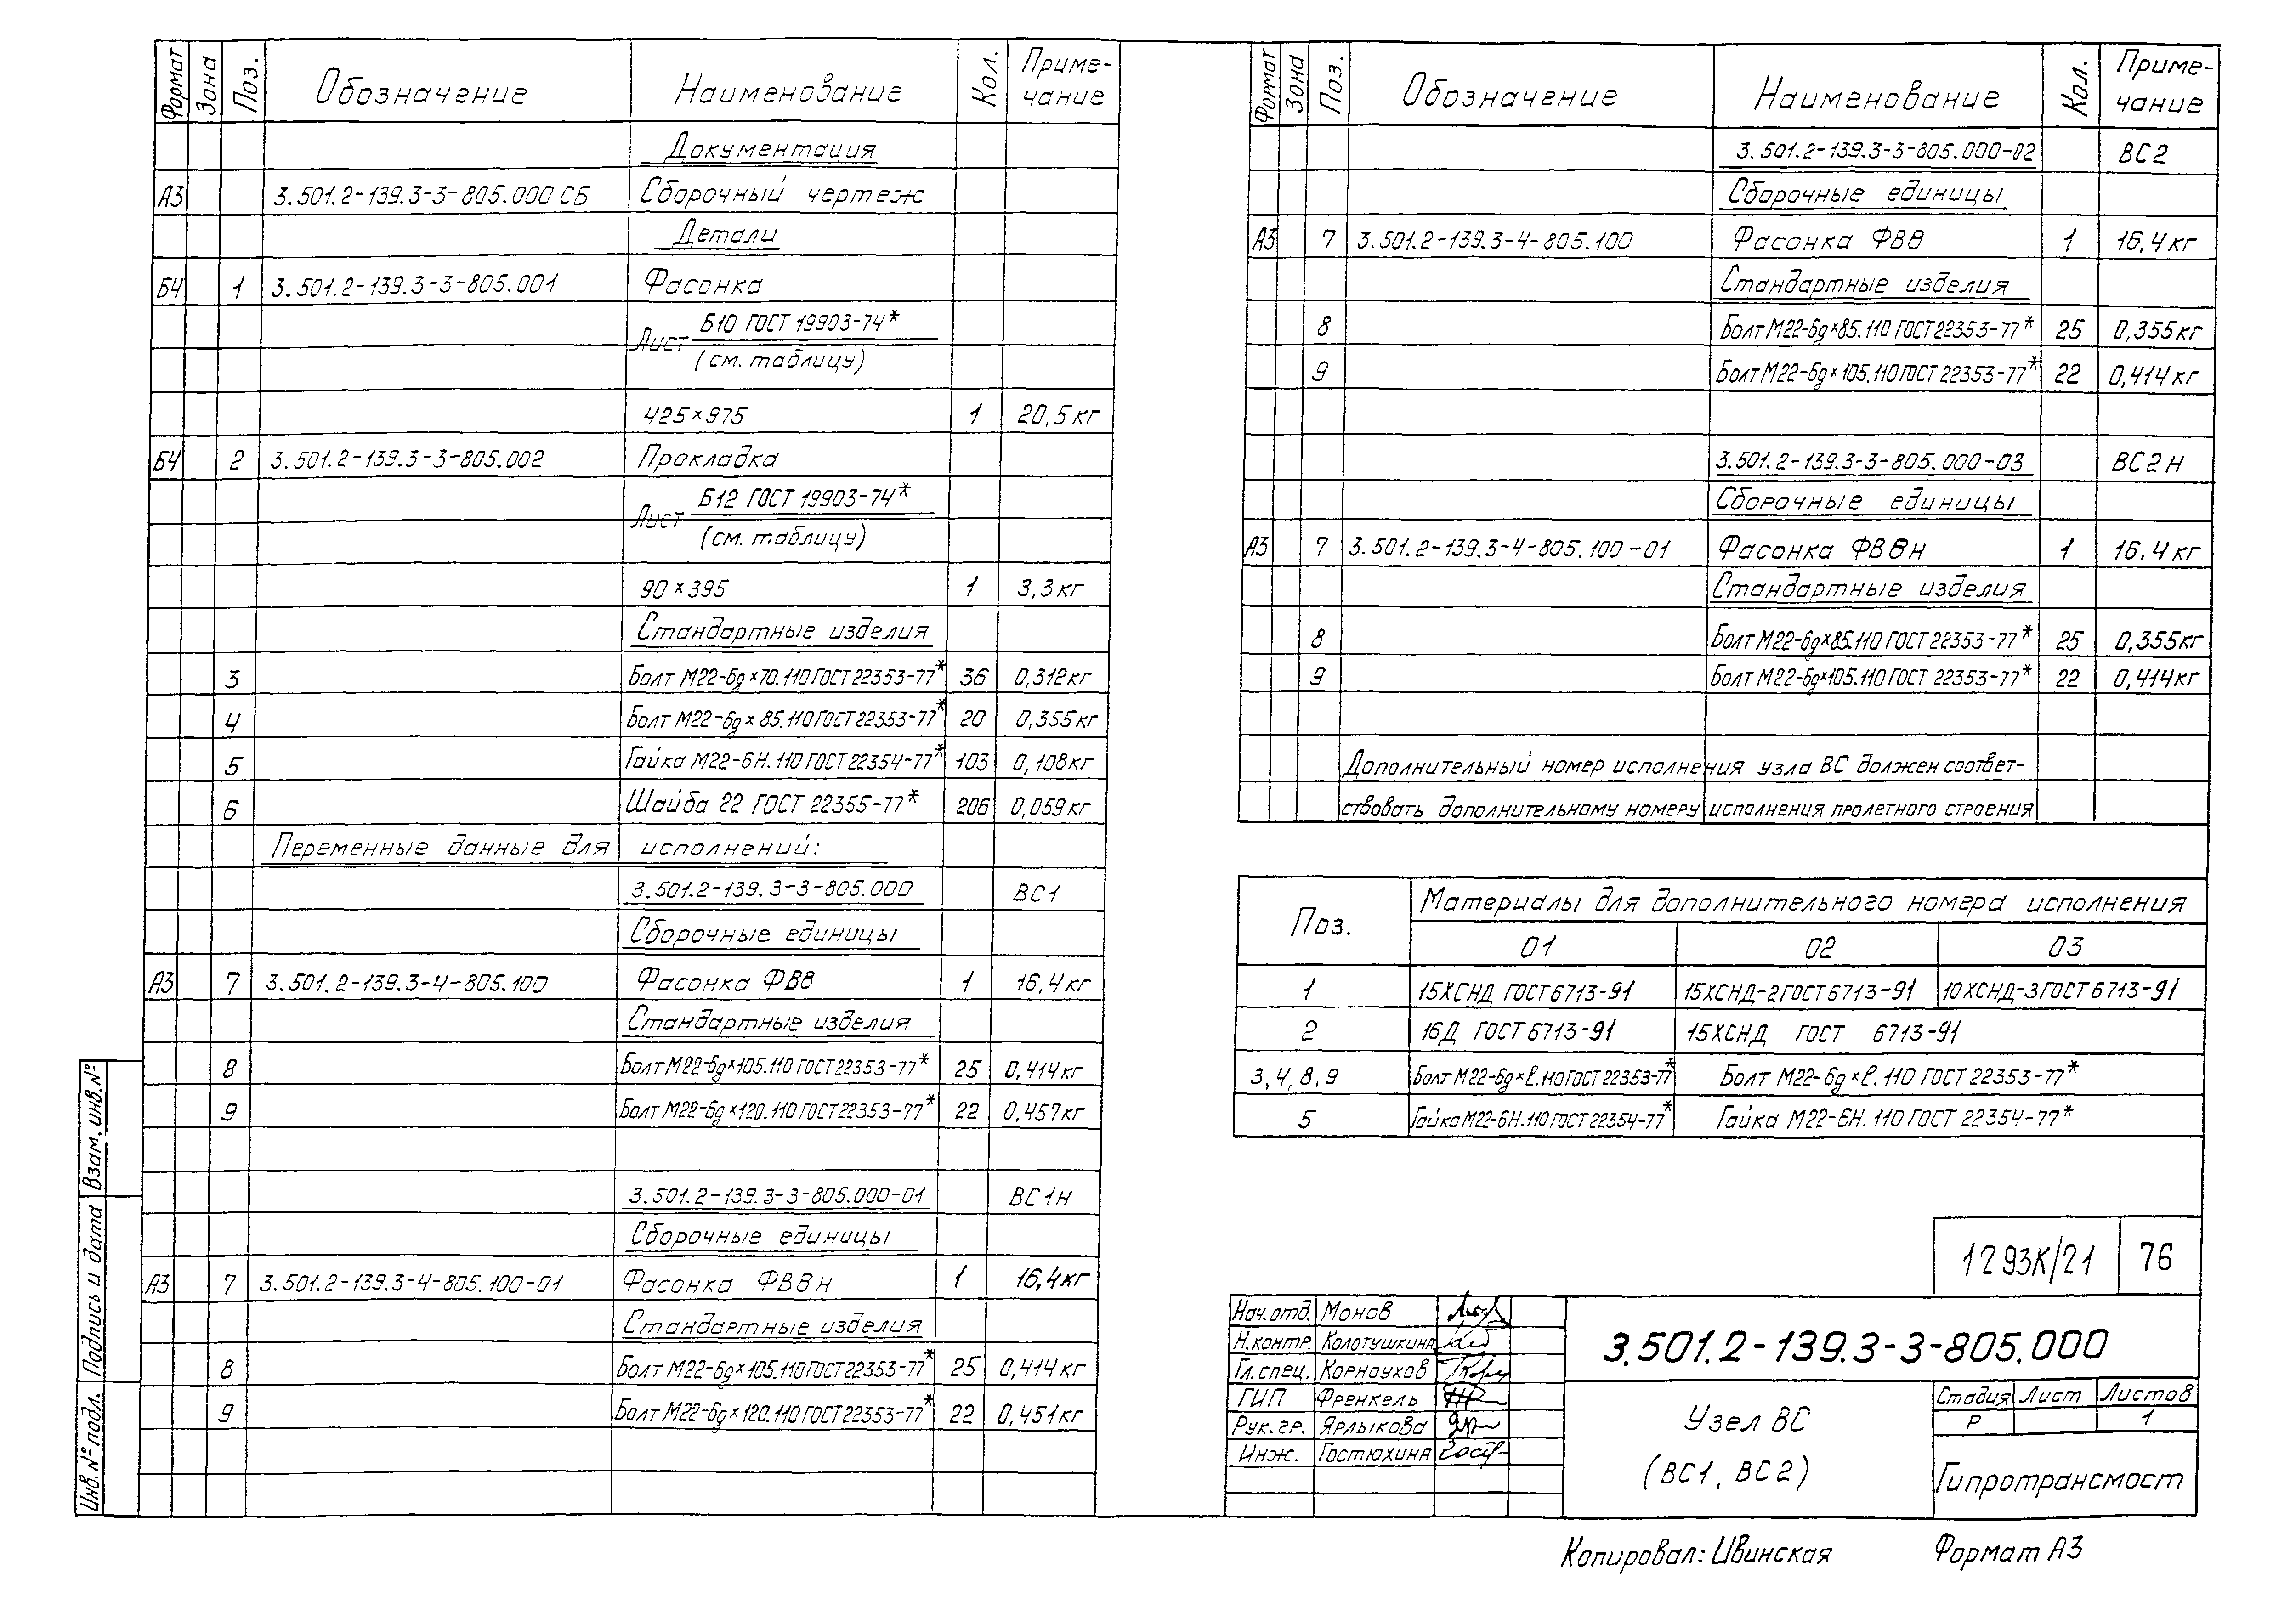 Формат Зона Поз. Обозначение Наименование Кол. Приме-
чание
Документация
А3 3.501.2-139.3-3-805.000 СБ Сборочный чертеж
Детали
Б4 1 3.501.2-139.3-3-805.001 Фасонка
Лист Б10 ГОСТ 19903-74*
(см. таблицу)
425×975 1 20,5 кг
Б4 2 3.501.2-139.3-3-805.002 Прокладка
Лист Б12 ГОСТ 19903-74*
(см. таблицу)
90×395 1 3,3 кг
Стандартные изделия
3 Болт М22-6g×70.110 ГОСТ 22353-77* 36 0,312 кг
4 Болт М22-6g×85.110 ГОСТ 22353-77* 20 0,355 кг
5 Гайка М22-6Н.110 ГОСТ 22354-77* 103 0,108 кг
6 Шайба 22 ГОСТ 22355-77* 206 0,059 кг
Переменные данные для исполнений:
3.501.2-139.3-3-805.000 ВС1
Сборочные единицы
А3 7 3.501.2-139.3-4-805.100 Фасонка ФВ8 1 16,4 кг
Стандартные изделия
8 Болт М22-6g×105.110 ГОСТ 22353-77* 25 0,414 кг
9 Болт М22-6g×120.110 ГОСТ 22353-77* 22 0,457 кг
3.501.2-139.3-3-805.000-01 ВС1н
Сборочные единицы
А3 7 3.501.2-139.3-4-805.100-01 Фасонка ФВ8н 1 16,4 кг
Стандартные изделия
8 Болт М22-6g×105.110 ГОСТ 22353-77* 25 0,414 кг
9 Болт М22-6g×120.110 ГОСТ 22353-77* 22 0,451 кг
Формат Зона Поз. Обозначение Наименование Кол. Приме-
чание
3.501.2-139.3-3-805.000-02 ВС2
Сборочные единицы
А3 7 3.501.2-139.3-4-805.100 Фасонка ФВ8 1 16,4 кг
Стандартные изделия
8 Болт М22-6g×85.110 ГОСТ 22353-77* 25 0,355 кг
9 Болт М22-6g×105.110 ГОСТ 22353-77* 22 0,414 кг
3.501.2-139.3-3-805.000-03 ВС2н
Сборочные единицы
А3 7 3.501.2-139.3-4-805.100-01 Фасонка ФВ8н 1 16.4 кг
Стандартные изделия
8 Болт М22-6g×85.110 ГОСТ 22353-77* 25 0,355 кг
9 Болт М22-6g×105.110 ГОСТ 22353-77* 22 0,414 кг
Дополнительный номер исполнения узла ВС должен соответ-
ствовать дополнительному номеру исполнения пролетного строения
Поз. Материалы для дополнительного номера исполнения
01 02 03
1 15ХСНД ГОСТ 6713-91 15ХСНД-2 ГОСТ 6713-91 10ХСНД-3 ГОСТ 6713-91
2 16Д ГОСТ 6713-91 15ХСНД ГОСТ 6713-91
3, 4, 8, 9 Болт М22-6g×ℓ.110 ГОСТ 22353-77* Болт М22-6g×ℓ.110 ГОСТ 22353-77*
5 Гайка М22-6Н.110 ГОСТ 22354-77* Гайка М22-6Н.110 ГОСТ 22354-77*
Взам. инв. №
Подпись и дата
Инв. № подл.
1293К/21 76
Нач.отд. Монов
Н.контр. Колотушкина
Гл.спец. Корноухов
ГИП Френкель
Рук.гр. Ярлыкова
Инж. Гостюхина
3.501.2-139.3-3-805.000
Узел ВС
(ВС1, ВС2)
Стадия Лист Листов
Р 1
Гипротрансмост
Копировал: Ивинская Формат А3